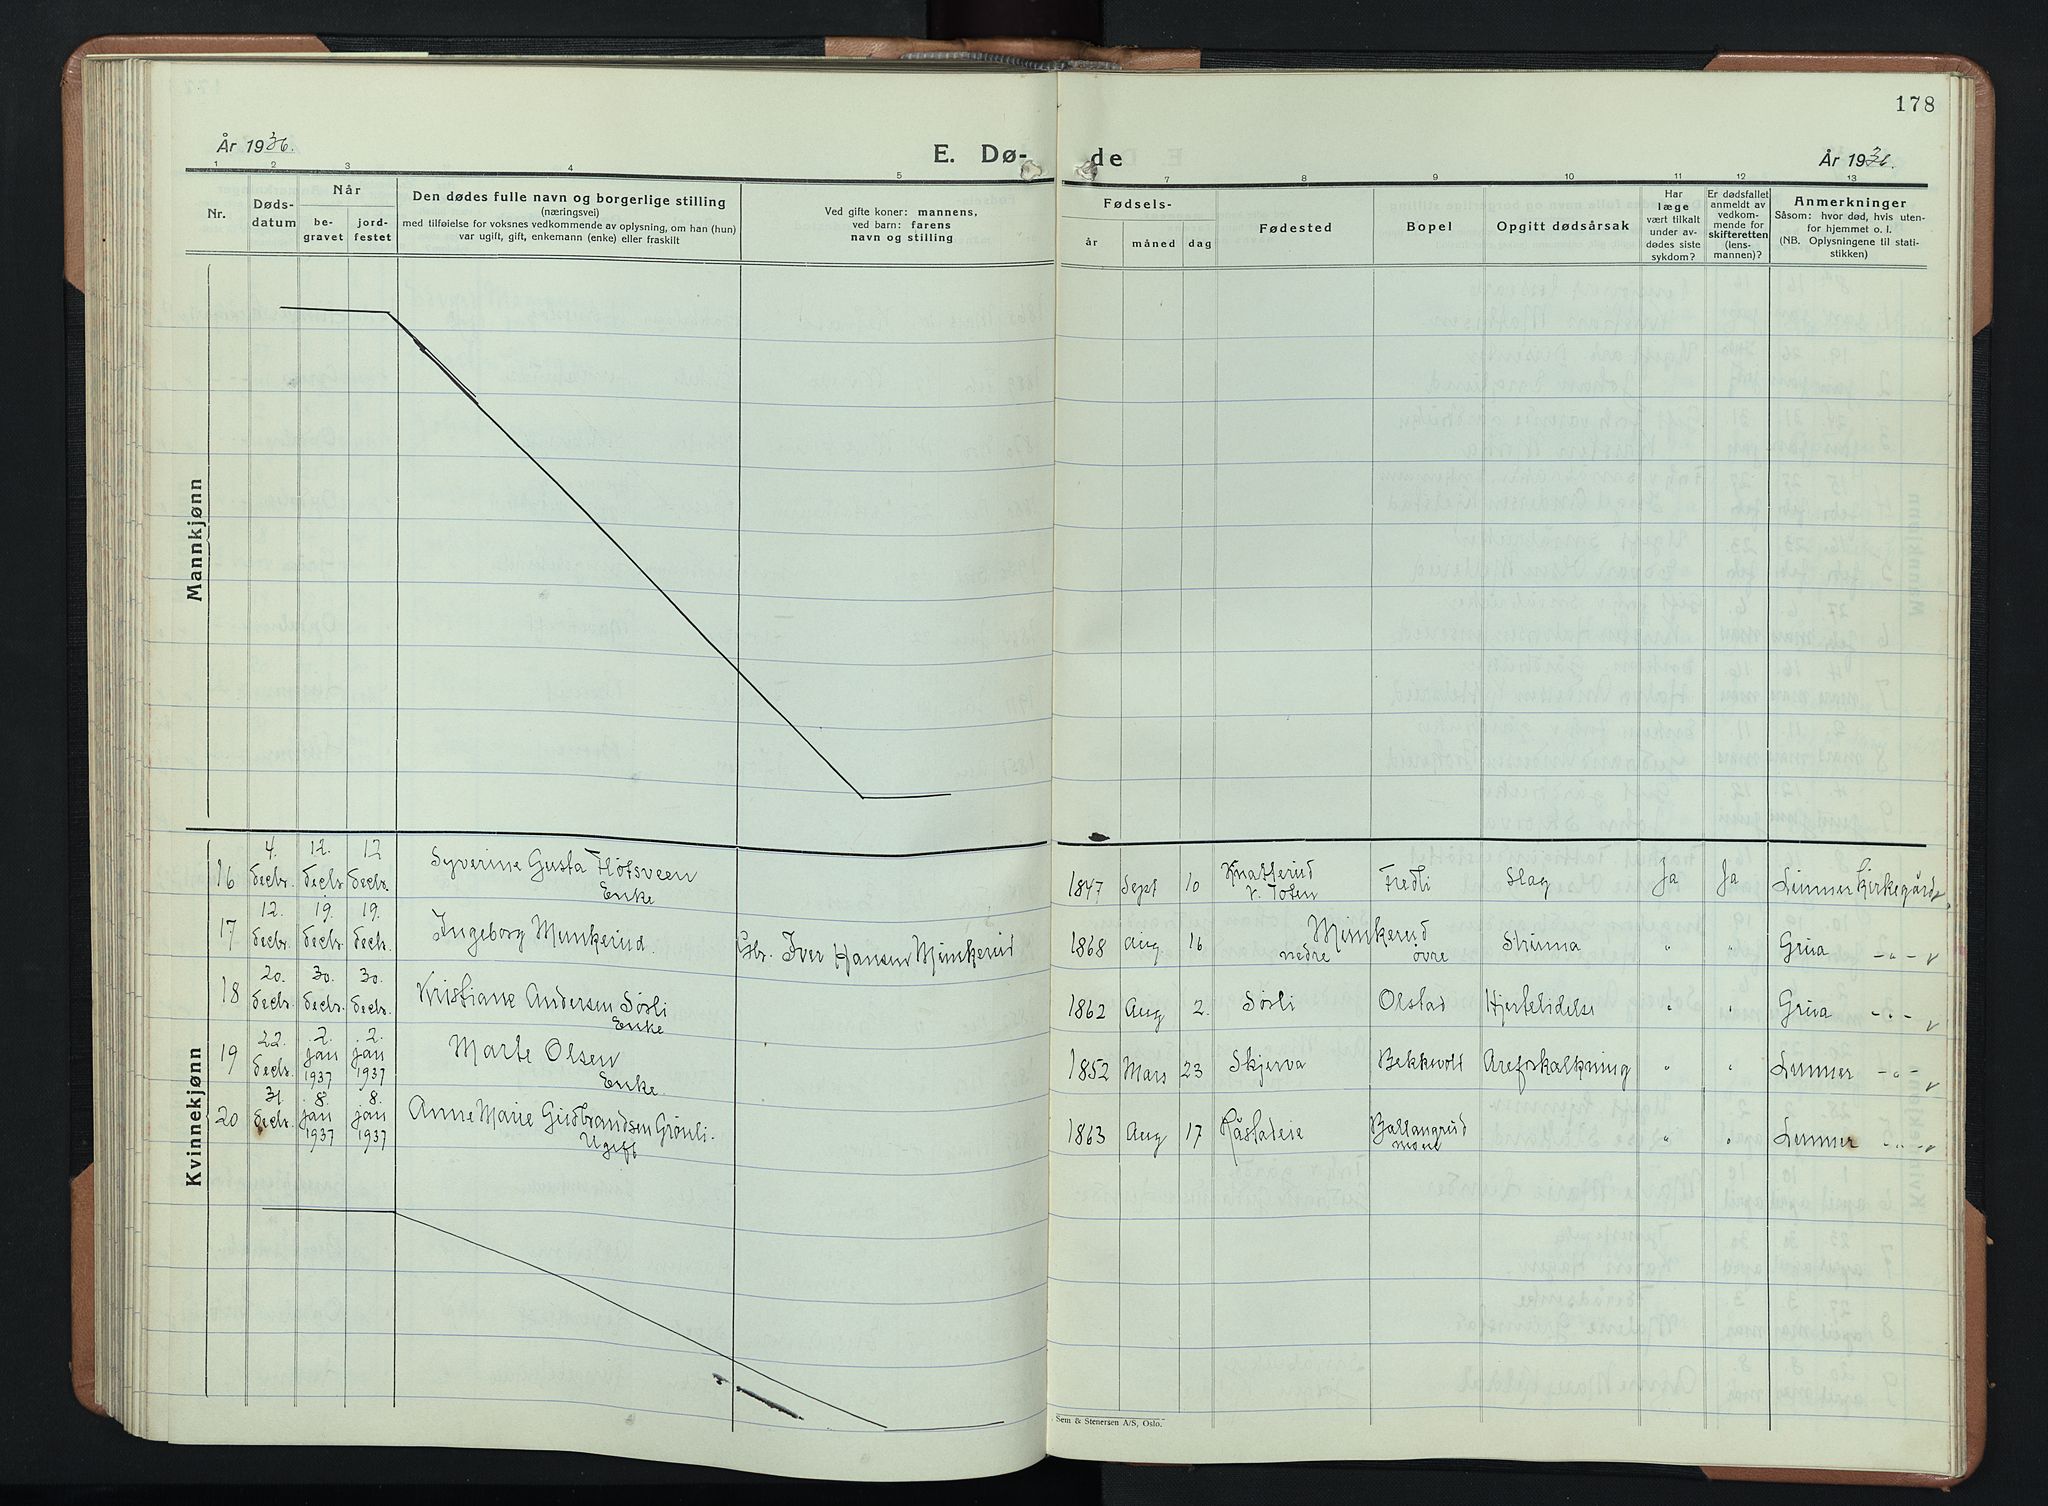 178
År 1936.
E. Dø-
de
År 1936.
1 2 3 4 5 7 8 9 10 11 12 13
Nr.
Døds-
datum
Når
be-
gravet
jord-
festet
Den dødes fulle navn og borgerlige stilling
(næringsvei)
med tilføielse for voksnes vedkommende av oplysning, om han (hun)
var ugift, gift, enkemann (enke) eller fraskilt
Ved gifte koner: mannens,
ved barn: farens
navn og stilling
Fødsels-
år måned dag
Fødested
Bopel
Opgitt dødsårsak
Har
læge
vært tilkalt
under av-
dødes siste
sykdom?
Er dødsfallet
anmeldt av
vedkom-
mende for
skifteretten
(lens-
mannen)?
Anmerkninger
Såsom: hvor død, hvis uten-
for hjemmet o. l.
(NB. Oplysningene til stati-
stikken)
Mannkjønn
Kvinnekjønn
16 4. decbr. 12. decbr. 12 decbr. Syverine Gusta Flotsveen
Enke
1847 Sept 10 Knatterud
V. Toten
Fredli Slag Ja Ja Lunner Kirkegård
17 12. decbr. 19. decbr. 19. decbr. Ingeborg Munkerud. Gbr. Iver Hansen Munkerud
1868 Aug 16 Munkerud
nedre øvre
Struma " " Grua -"-
18 20. decbr. 30. decbr. 30. decbr. Kristiane Andersen Sørli
Enke
1862 Aug 2. Sørli Olstad Hjertelidelse " " Grua -"-
19 22. decbr. 2. jan 1937 2. jan 1937 Marte Olsen
Enke
1852 Mars 23 Skjerva Bekkevold Areforkalkning " " Lunner -"-
20 31. decbr. 8. jan 1937 8. jan 1937 Anne Marie Gudbrandsen Grønli.
Ugift
1863 Aug 17 Råstadeie Ballangrud
mone
" " Lunner -"-
Sem & Stenersen A/S, Oslo.